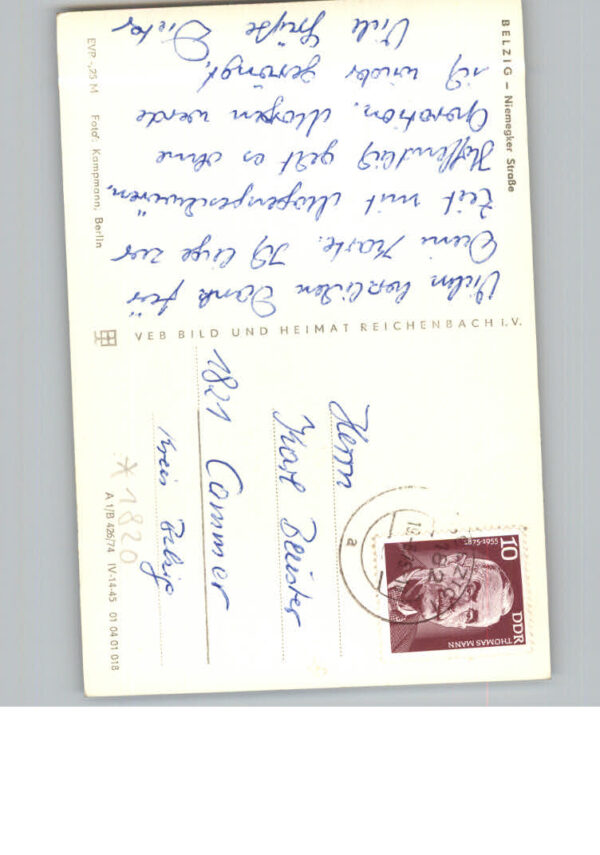 BELZIG – Niemegker Straße
Vielen herzlichen Dank für
Deine Karte. Ich liege zur
Zeit mit Magengeschwüren.
Hoffentlich geht es ohne
Operation. Morgen werde
ich wieder geröngt.
Viele Grüße Dieter
EVP -,25 M Foto: Kampmann, Berlin
VEB BILD UND HEIMAT REICHENBACH I. V.
10
1875-1955
DDR
THOMAS MANN
a
Herrn
Karl Beuster
1821 Cammer
Kreis Belzig
* 1820
A 1/B 426/74 IV-14-45 01 04 01 018